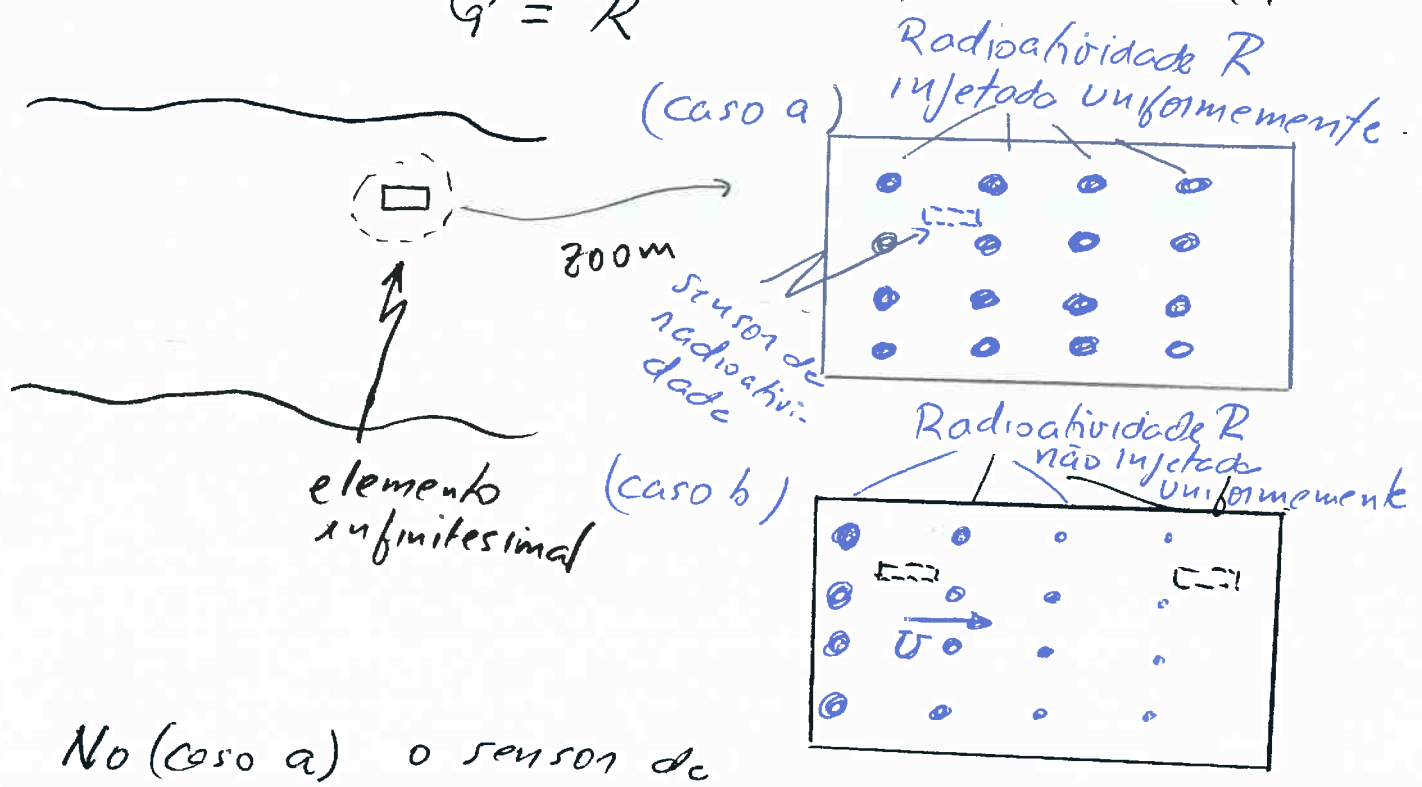 G = R
Radioatividade R
injetado uniformemente.
(caso a)
zoom
sensor de
radioativi-
dade
elemento
infinitesimal
(caso b)
Radioatividade R
não injetada
uniformemente
U
No (caso a) o sensor de